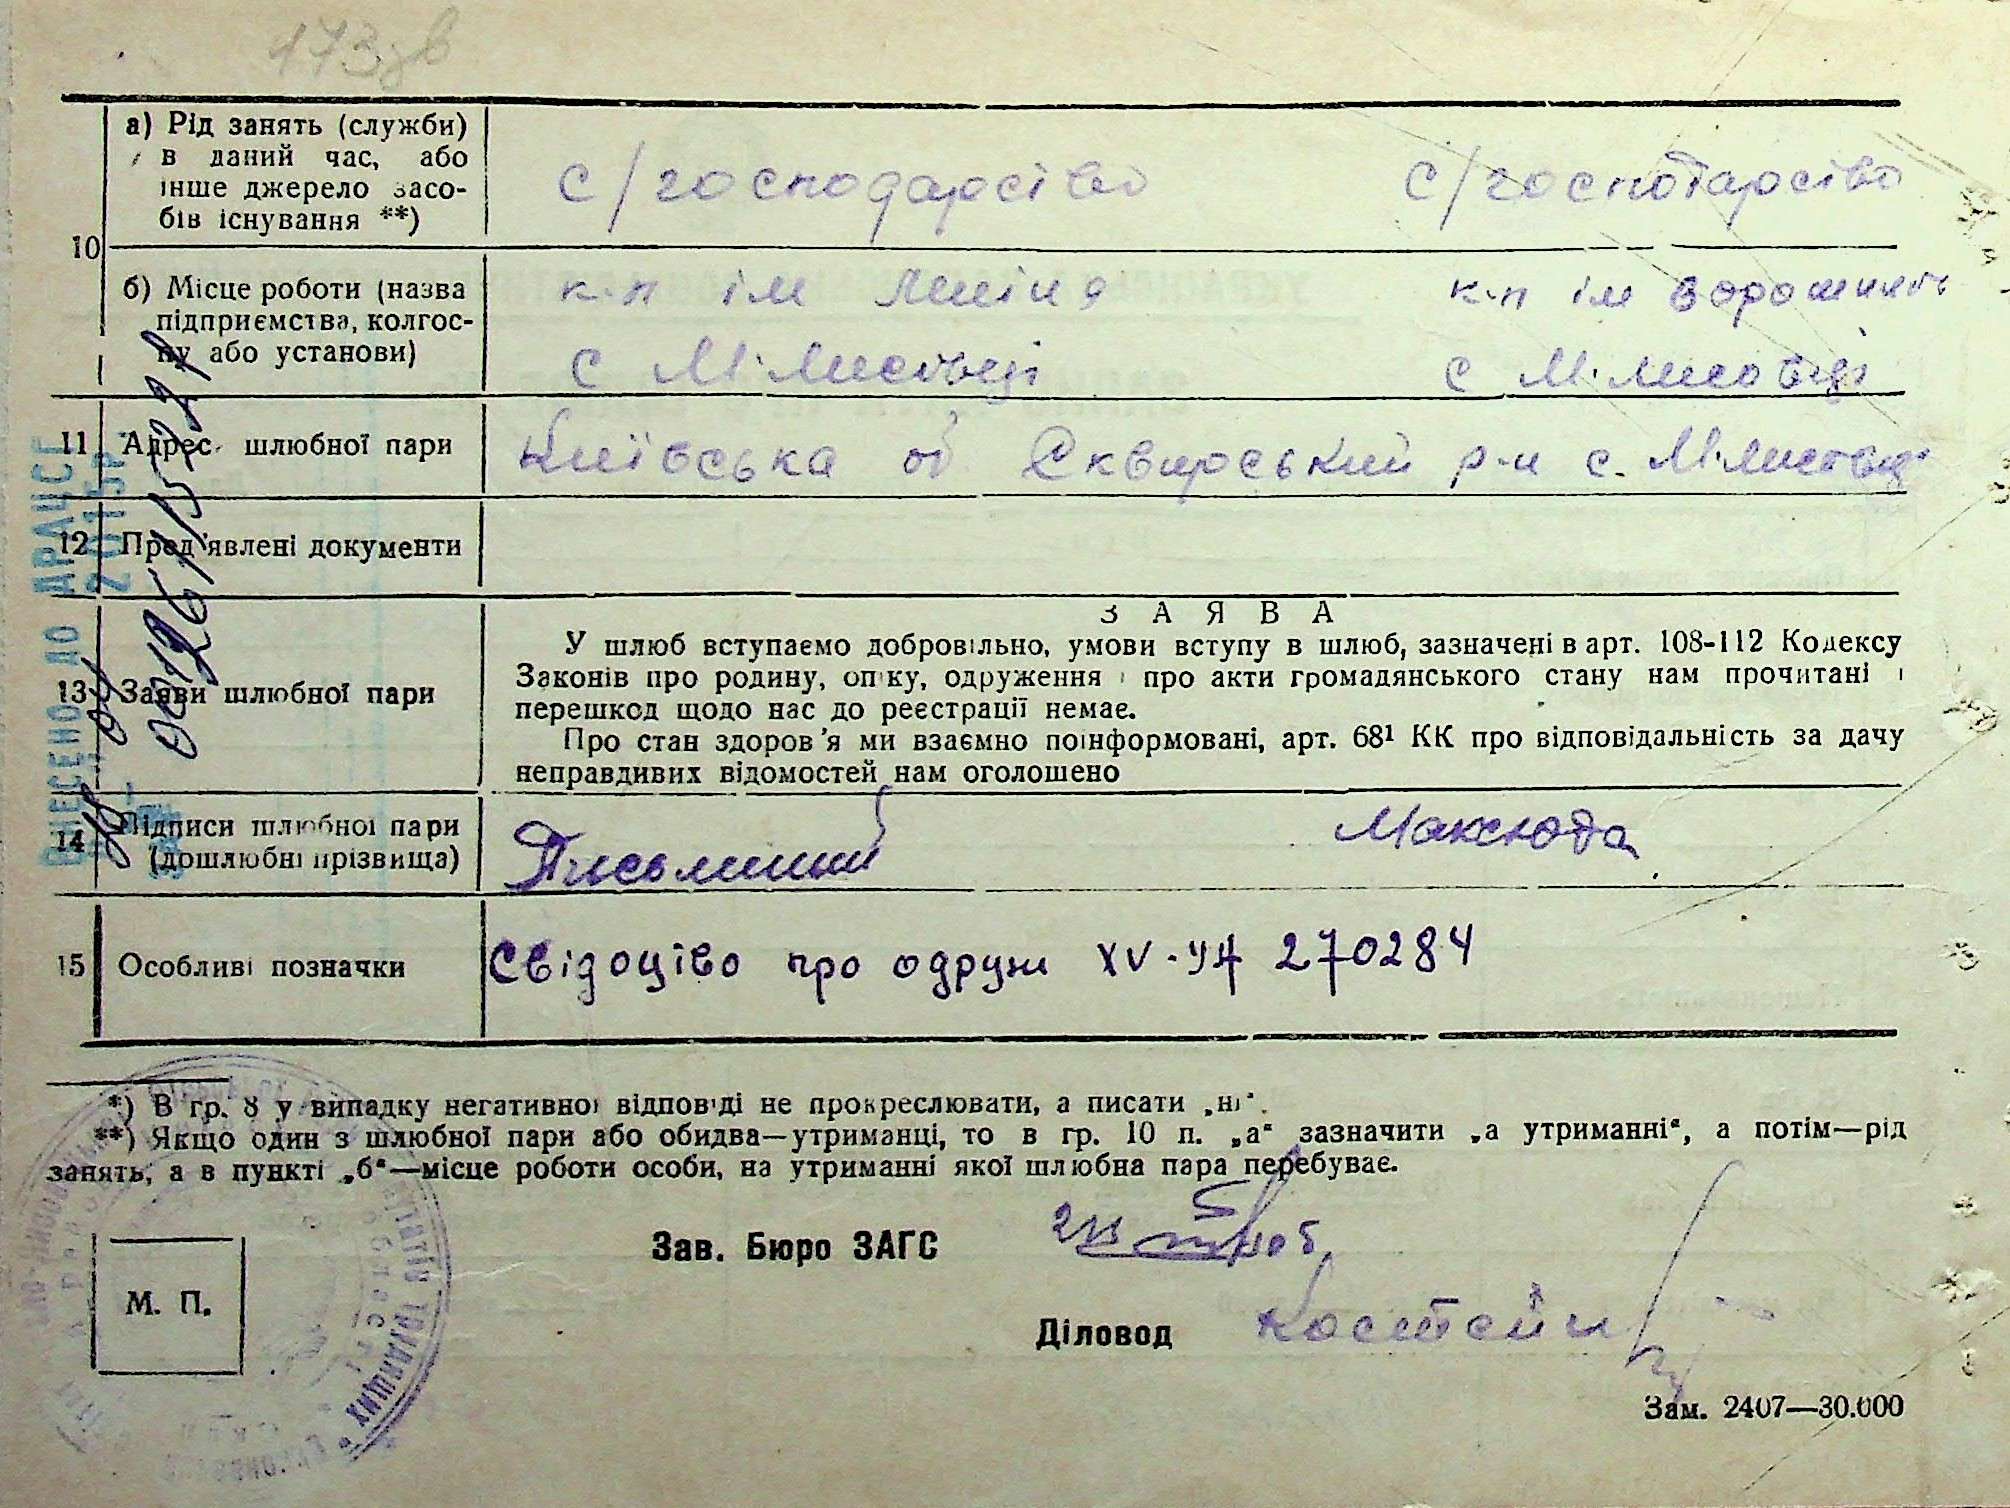 173зв
а) Рід занять (служби) в даний час, або інше джерело засобів існування **)
с/господарство с/госпотарство
10
б) Місце роботи (назва підприємства, колгоспу або установи)
к-п ім Леніна к-п ім Ворошилова
с М·Лисовці с М·Лисовці
11 Адрес шлюбної пари Київська об Сквирський р-н с. М·Лисовці
12 Пред'явлені документи
13 Заяви шлюбної пари
ЗАЯВА
У шлюб вступаємо добровільно, умови вступу в шлюб, зазначені в арт. 108-112 Кодексу
Законів про родину, опіку, одруження і про акти громадянського стану нам прочитані і
перешкод щодо нас до реєстрації немає.
Про стан здоров'я ми взаємно поінформовані, арт. 68¹ КК про відповідальність за дачу
неправдивих відомостей нам оголошено
14 Підписи шлюбної пари (дошлюбні прізвища) Письменний Максюта
15 Особливі позначки Свідоцтво про одруж XV-УЯ 270284
ВНЕСЕНО ДО ДРАЦСГ
2015р.
*) В гр. 8 у випадку негативної відповіді не прокреслювати, а писати „ні".
**) Якщо один з шлюбної пари або обидва—утриманці, то в гр. 10 п. „а" зазначити „а утриманні", а потім—рід
занять, а в пункті „б"—місце роботи особи, на утриманні якої шлюбна пара перебуває.
Зав. Бюро ЗАГС
М. П.
Діловод
Зам. 2407—30.000